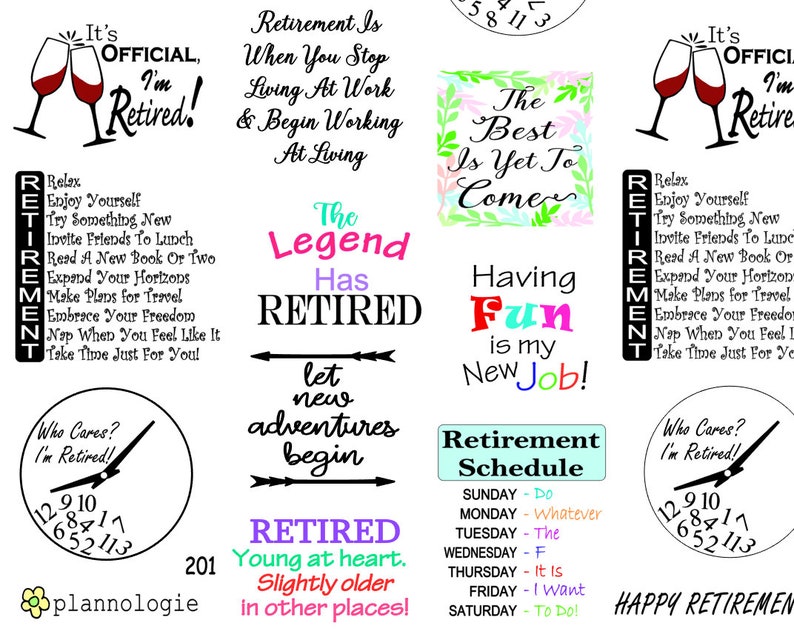 It's
OFFICIAL,
I'm
Retired!
RETIREMENT
Relax
Enjoy Yourself
Try Something New
Invite Friends To Lunch
Read A New Book Or Two
Expand Your Horizons
Make Plans for Travel
Embrace Your Freedom
Nap When You Feel Like It
Take Time Just For You!
Who Cares?
I'm Retired!
9 10
12 8 4 1 7
6 5 2 11 3
201
plannologie
Retirement Is
When You Stop
Living At Work
& Begin Working
At Living
The
Legend
Has
RETIRED
let
new
adventures
begin
RETIRED
Young at heart.
Slightly older
in other places!
5 8 11 3
The
Best
Is Yet To
Come
Having
Fun
is my
New Job!
Retirement
Schedule
SUNDAY - Do
MONDAY - Whatever
TUESDAY - The
WEDNESDAY - F
THURSDAY - It Is
FRIDAY - I Want
SATURDAY - To Do!
It's
OFFICIA
I'm
Retired!
RETIREMENT
Relax
Enjoy Yourself
Try Something New
Invite Friends To Lunch
Read A New Book Or Two
Expand Your Horizons
Make Plans for Travel
Embrace Your Freedom
Nap When You Feel Like It
Take Time Just For You!
Who Cares?
I'm Retired!
9 10
12 8 4 1 7
6 5 2 11 3
HAPPY RETIREMEN